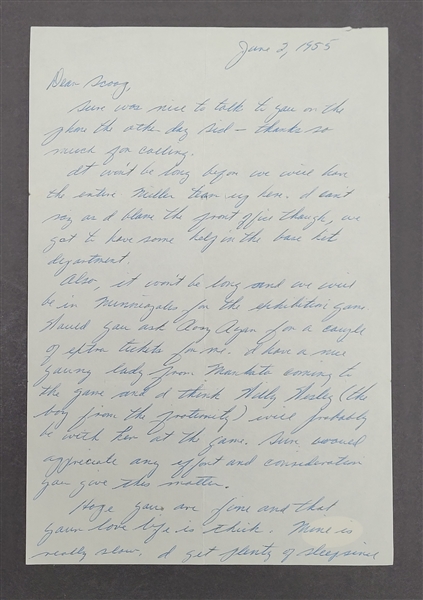 June 2, 1955
Dear Scoog,
Sure was nice to talk to you on the
phone the other day Sid – thanks so
much for calling.
It won't be long before we will have
the entire Miller team up here. I can't
say as I blame the front office though, we
got to have some help in the base hit
department.
Also, it won't be long and we will
be in Minneapolis for the exhibition game.
Would you ask Rosy Ryan for a couple
of extra tickets for me. I have a nice
young lady from Mankato coming to
the game and I think Wally (the
boy from the fraternity) will probably
be with her at the game. Sure would
appreciate any effort and consideration
you give this matter.
Hope yours are fine and that
your love life is thick. Mine is
really slow. I get plenty of sleep since